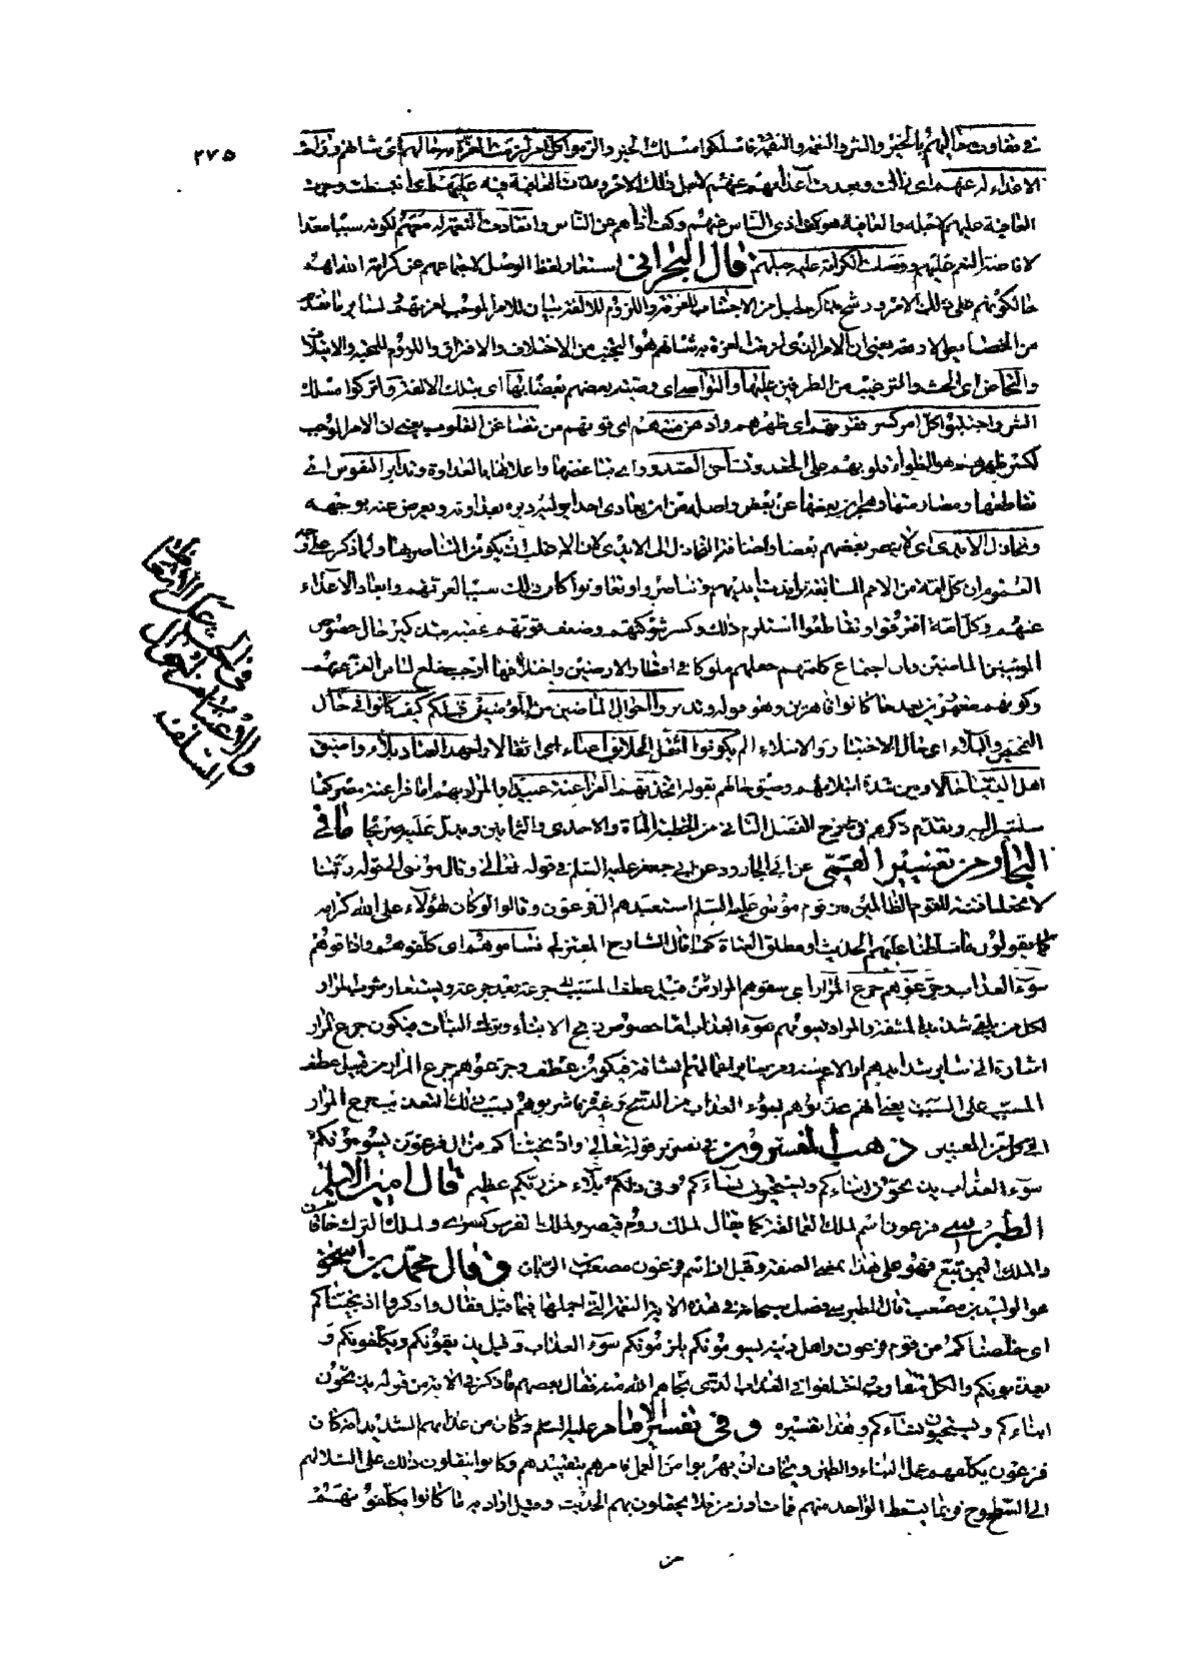 ٢٧٥
في تفاوت حاليهم بالخير والشر والنعمة والنقمة فاسلكوا مسلك الخير والزموا كل أمر لزمت العزة به حالهم أي شانهم وزاحت
الاعداء له عنهم أي زالت وبعدت أعداؤهم عنهم لاجل ذلك الامر ومدت العافية فيه عليهم أي انبسطت
العافية عليهم لاجله والعافية هو كف أذى الناس عنهم وكف أذاهم عن الناس وانقادت النعمة له معهم لكونه سببا معدا
لافاضة النعم عليهم ووصلت الكرامة عليه حبلهم قال البحراني استعار لفظ الوصل لاجتماعهم عن كرامة الله لهم
حالكونهم على ذلك الامر ورشح بذكر الحبل من الاجتناب للفرقة واللزوم للالفة بيان للامر الموجب لعزتهم
يعني ان الامر الذي لزمت العزة به شانهم هو التجنب من الاختلاف والافتراق واللزوم للمحبة والايتلاف
والتحاض أي الحث والترغيب من الطرفين عليها والتواصي أي وصية بعضهم بعضا بها أي بتلك الالفة واتركوا مسلك
الشر واجتنبوا كل أمر كسر فقرتهم أي ظهرهم وأوهن منتهم أي قوتهم من تضاغن القلوب يعني ان الامر الموجب
لكسر ظهرهم هو انطواء قلوبهم على الحقد وتشاحن الصدور أي تباغضها وامتلائها بالعداوة وتدابر النفوس أي
تقاطعها ومصارمتها وهجران بعضها عن بعض وأصله من ان يعادي احد
وتخاذل الايدي أي لا ينصر بعضهم بعضا واضافة التخاذل الى الايدي لان الاغلب ان يكون التناصر بها ولما ذكر على وجه
العموم ان كل أمة من الامم السابقة ترادفت أيديهم وتناصروا وتعاونوا كان ذلك سببا لعزتهم وابعاد الاعداء
عنهم وكل أمة افترقوا وتقاطعوا استلزم ذلك وكسر شوكتهم وضعف قوتهم عقبه بتذكير حال خصوص
المؤمنين الماضين وان اجتماع كلمتهم جعلهم ملوكا في اقطار الارضين واختلافها أوجب خلع لباس العز عنهم
وكونهم مقهورين بعد ما كانوا قاهرين وهو قوله وتدبروا أحوال الماضين من المؤمنين قبلكم كيف كانوا في حال
التمحيص والبلاء أي حال الاختبار والابتلاء ألم يكونوا أثقل الخلائق أعباء أي اثقالا وأجهد العباد بلاء وأضيق
أهل الدنيا حالا وبين شدة ابتلائهم وضيق حالهم بقوله اتخذتهم الفراعنة عبيدا والمراد بهم اما فراعنة مصر كما
سنشير اليه وتقدم ذكرهم في شرح الفصل الثاني من الخطبة المأة والاحدى والثمانين ويدل عليه صريحا ما في
البحار من تفسير القمي عن أبي الجارود عن أبي جعفر عليه السلام في قوله تعالى وقال موسى الى قوله ربنا
لا تجعلنا فتنة للقوم الظالمين من قوم موسى عليه السلام استعبدهم آل فرعون وقالوا لو كان لهؤلاء على الله كرامة
كما يقولون ما سلطنا عليهم الحديث أو مطلق العتاة كما قال الشارح المعتزلي فساموهم أي كلفوهم وأذاقوهم
سوء العذاب وجرعوهم جرع المرار أي سقوهم المرار من قبيل عطف المسبب جرعة بعد جرعة ويستعار شرب المرار
لكل من يلقي شديد المشقة والمراد بسومهم سوء العذاب اما خصوص ذبح الابناء وترك البنات فيكون جرع المرار
اشارة الى ساير شدايدهم أو الاعم منه ومن ساير أفعالهم الشاقة فيكون عطف وجرعوهم جرع المرار من قبيل عطف
المسبب على السبب يعني انهم عذبوهم بسوء العذاب من الذبح وغيره فاشربوهم بسبب ذلك التعذيب جرع المرار
الى كل من المعنيين ذهب المفسرون في تفسير قوله تعالى واذ نجيناكم من آل فرعون يسومونكم
سوء العذاب يذبحون أبناءكم ويستحيون نساءكم وفي ذلكم بلاء من ربكم عظيم قال أمين الاسلام
الطبرسي فرعون اسم لملك العمالقة كما يقال لملك روم قيصر ولملك الفرس كسرى ولملك الترك خاقان
ولملك اليمن تبع فهو على هذا بمعنى الصفة وقيل ان اسم فرعون مصعب بن الريان وقال محمد بن اسحق
هو الوليد بن مصعب قال الطبرسي فصل سبحانه في هذه الاية النعمة التي أجملها فيما قبل فقال واذكروا اذ نجيناكم
أي خلصناكم من قوم فرعون وأهل دينه يسومونكم يلزمونكم سوء العذاب وقيل يذيقونكم ويكلفونكم و
يعذبونكم والكل متقارب اختلفوا في العذاب الذي نجاهم الله منه فقال بعضهم ما ذكر في الاية من قوله يذبحون
أبناءكم ويستحيون نساءكم وهذا تفسيره وفي تفسير الامام عليه السلام وكان من عذابهم الشديد انه كان
فرعون يكلفهم عمل البناء والطين ويخاف أن يهربوا من العمل فامرهم بتقييدهم وكانوا ينقلون ذلك على السلاليم
الى السطوح فربما يسقط الواحد منهم فمات أو زمن فلا يحفلون بهم الحديث وقيل أراد به ما كانوا يكلفونهم
من